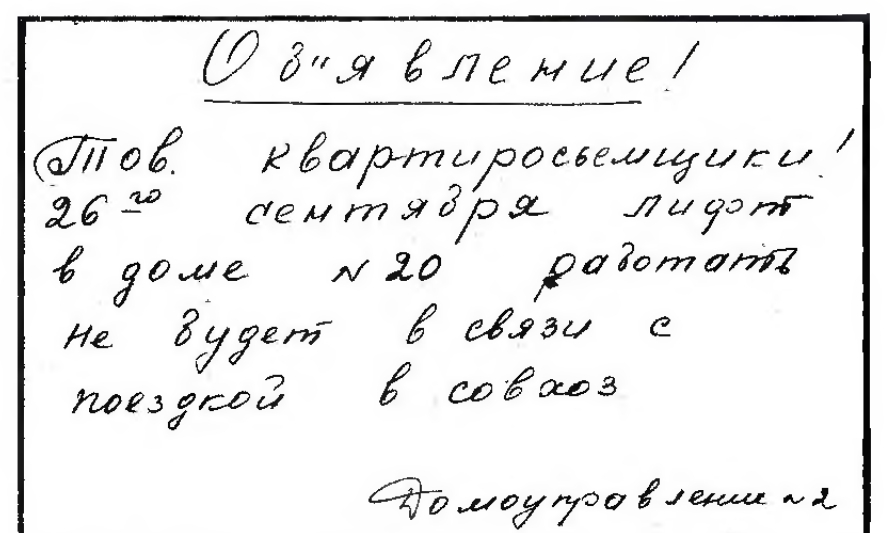 Об"явление!
Тов. квартиросьемщики!
26го сентября лифт
в доме №20 работать
не будет в связи с
поездкой в совхоз
Домоуправление №2